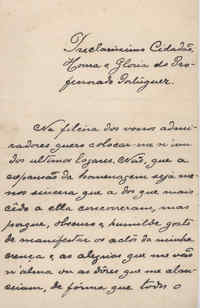 Preclarissimo Cidadão,
Honra e Gloria do Pro-
fessorado Portuguez.
Na fileira dos vossos admi-
radores quero colocar-me n'um
dos ultimos logares. Não, que a
expansão da homenagem seja me-
nos sincera que a dos que mais
cêdo a ella concorreram, mas
porque, obscuro e humilde, gosto
de manifestar os actos da minha
crença e as alegrias que me vão
n'alma ou as dôres que me alan-
ceiam, de fórma que todos o